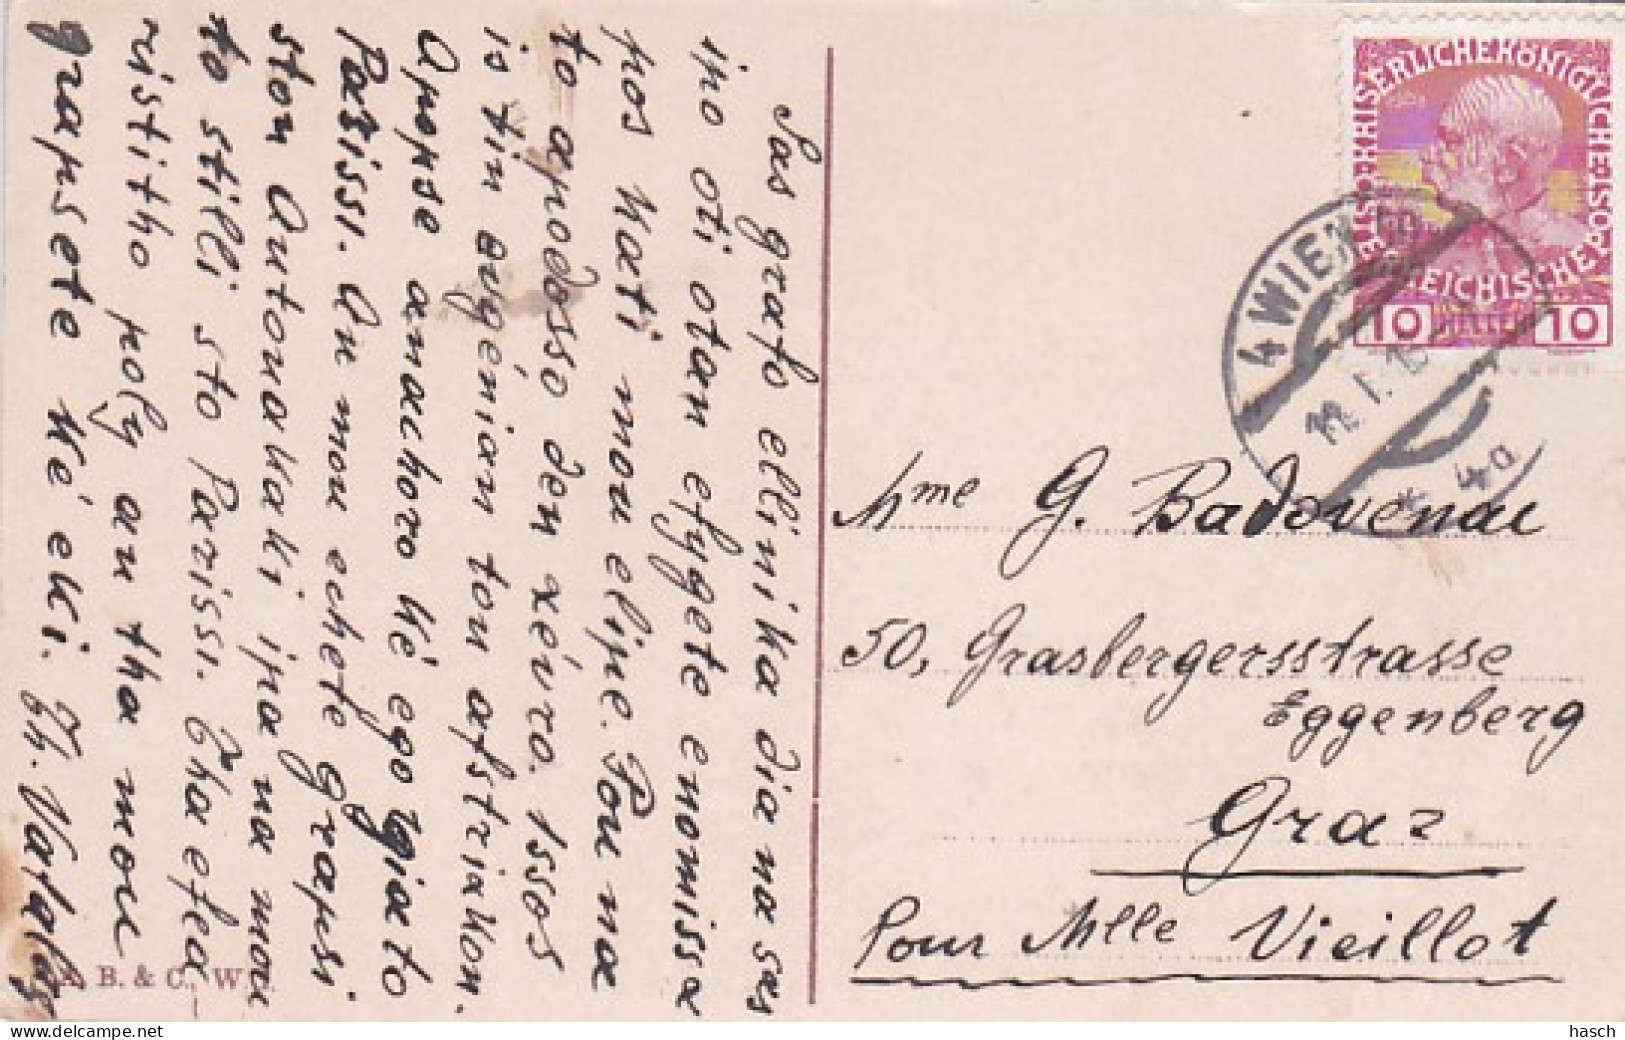 Sas grafo ellinika dia na sas
ipo oti otan efygete enomissa
pos kati mou elipe. Pou na
to apodosso den xévro. Issos
is tin evgenian ton afstriakon.
Apopse anachoro ké ego gia to
Parissi. An mou echete grapsi
ston Autonaki ipa na mou
to stilli sto Parissi. Tha efca
ristitho poly an tha mou
grapsete ké eki. Th. Vafalas
A. B. & C., W.
ÖSTERR KAISERLICHEKÖNIGLICHE ÖSTERREICHISCHE POST
10 HELLER 10
4 WIEN 50
11. I. 13
* 4a
Mme G. Badovenac
50, Grasbergersstrasse
Eggenberg
Graz
Pour Mlle Vieillot
hasch